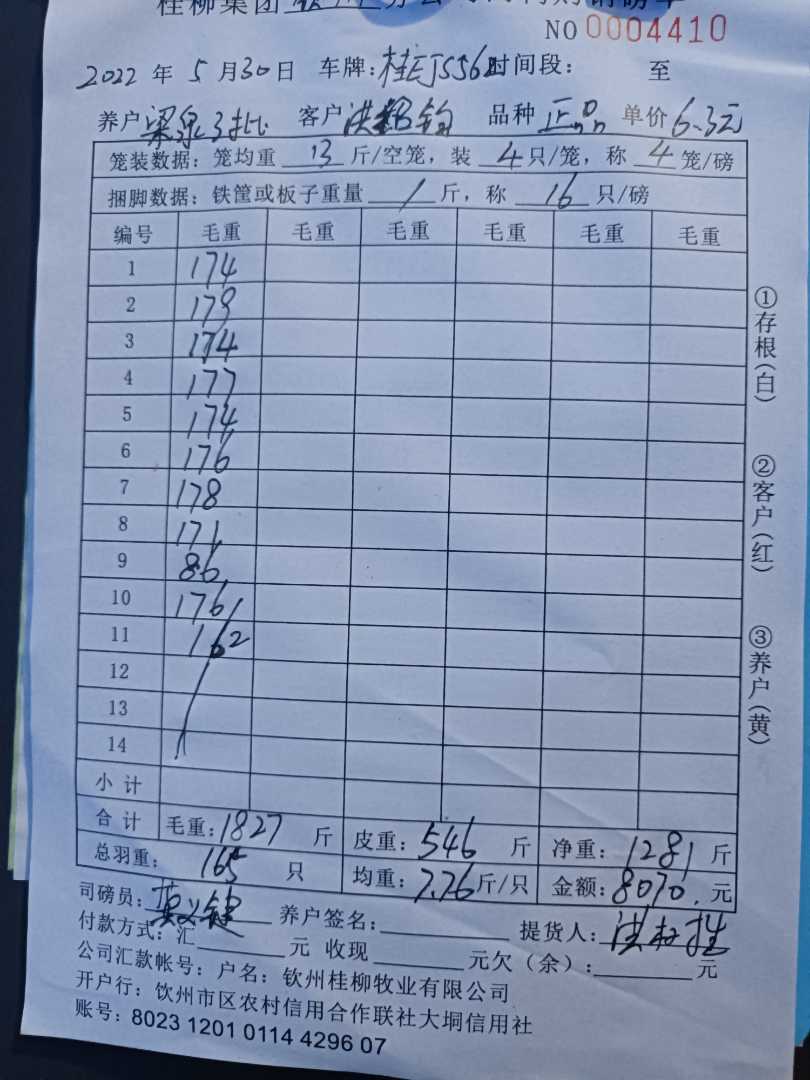 桂柳集团
NO 0004410
2022年5月30日 车牌:桂 时间段: 至
养户 梁泉3批 客户 洪 钧 品种 正品 单价 6.3元
笼装数据:笼均重 13 斤/空笼,装 4只/笼,称 4 笼/磅
捆脚数据:铁筐或板子重量 / 斤,称 16 只/磅
编号 毛重 毛重 毛重 毛重 毛重 毛重
1 174
2 179
3 174
4 177
5 174
6 176
7 178
8 171
9 86
10 176
11 162
12
13
14
小计
合计 毛重:1827 斤 皮重:546 斤 净重:1281斤
总羽重: 165 只 均重:7.76斤/只 金额:8070.元
司磅员: 养户签名: 提货人:洪
付款方式:汇 元 收现 元欠(余): 元
公司汇款帐号:户名:钦州桂柳牧业有限公司
开户行:钦州市区农村信用合作联社大垌信用社
账号:8023 1201 0114 4296 07
①存根(白)
②客户(红)
③养户(黄)